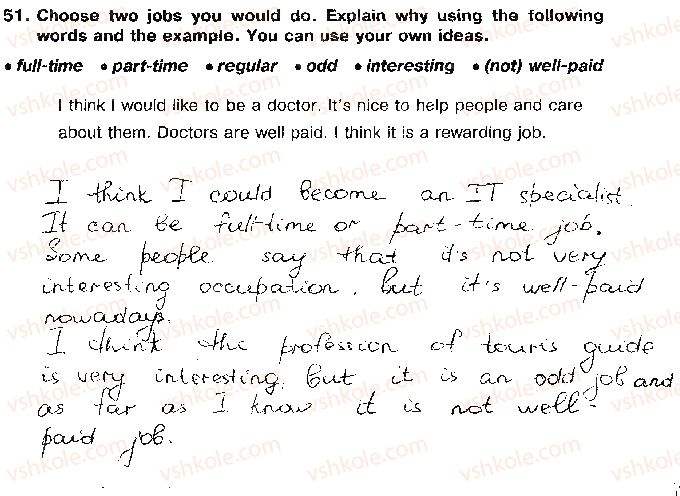 51. Choose two jobs you would do. Explain why using the following
words and the example. You can use your own ideas.
• full-time • part-time • regular • odd • interesting • (not) well-paid
I think I would like to be a doctor. It's nice to help people and care
about them. Doctors are well paid. I think it is a rewarding job.
I think I could become an IT specialist.
It can be full-time or part-time job.
Some people say that it's not very
interesting occupation, but it's well-paid
nowadays.
I think the profession of touris guide
is very interesting, but it is an odd job and
as far as I know it is not well-
paid job.
vshkole.com